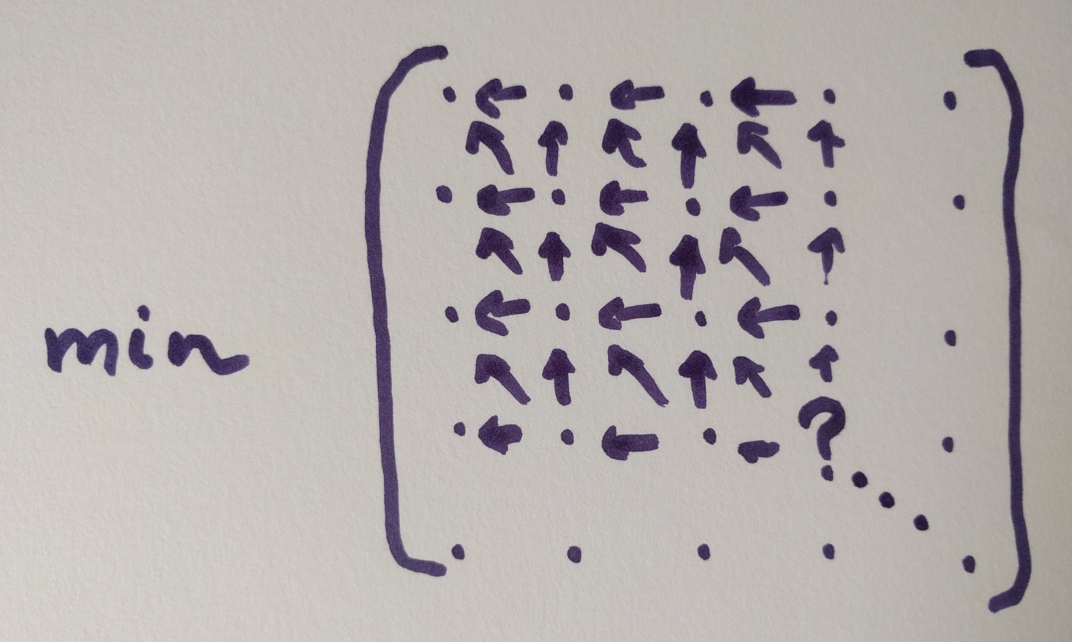 min
?